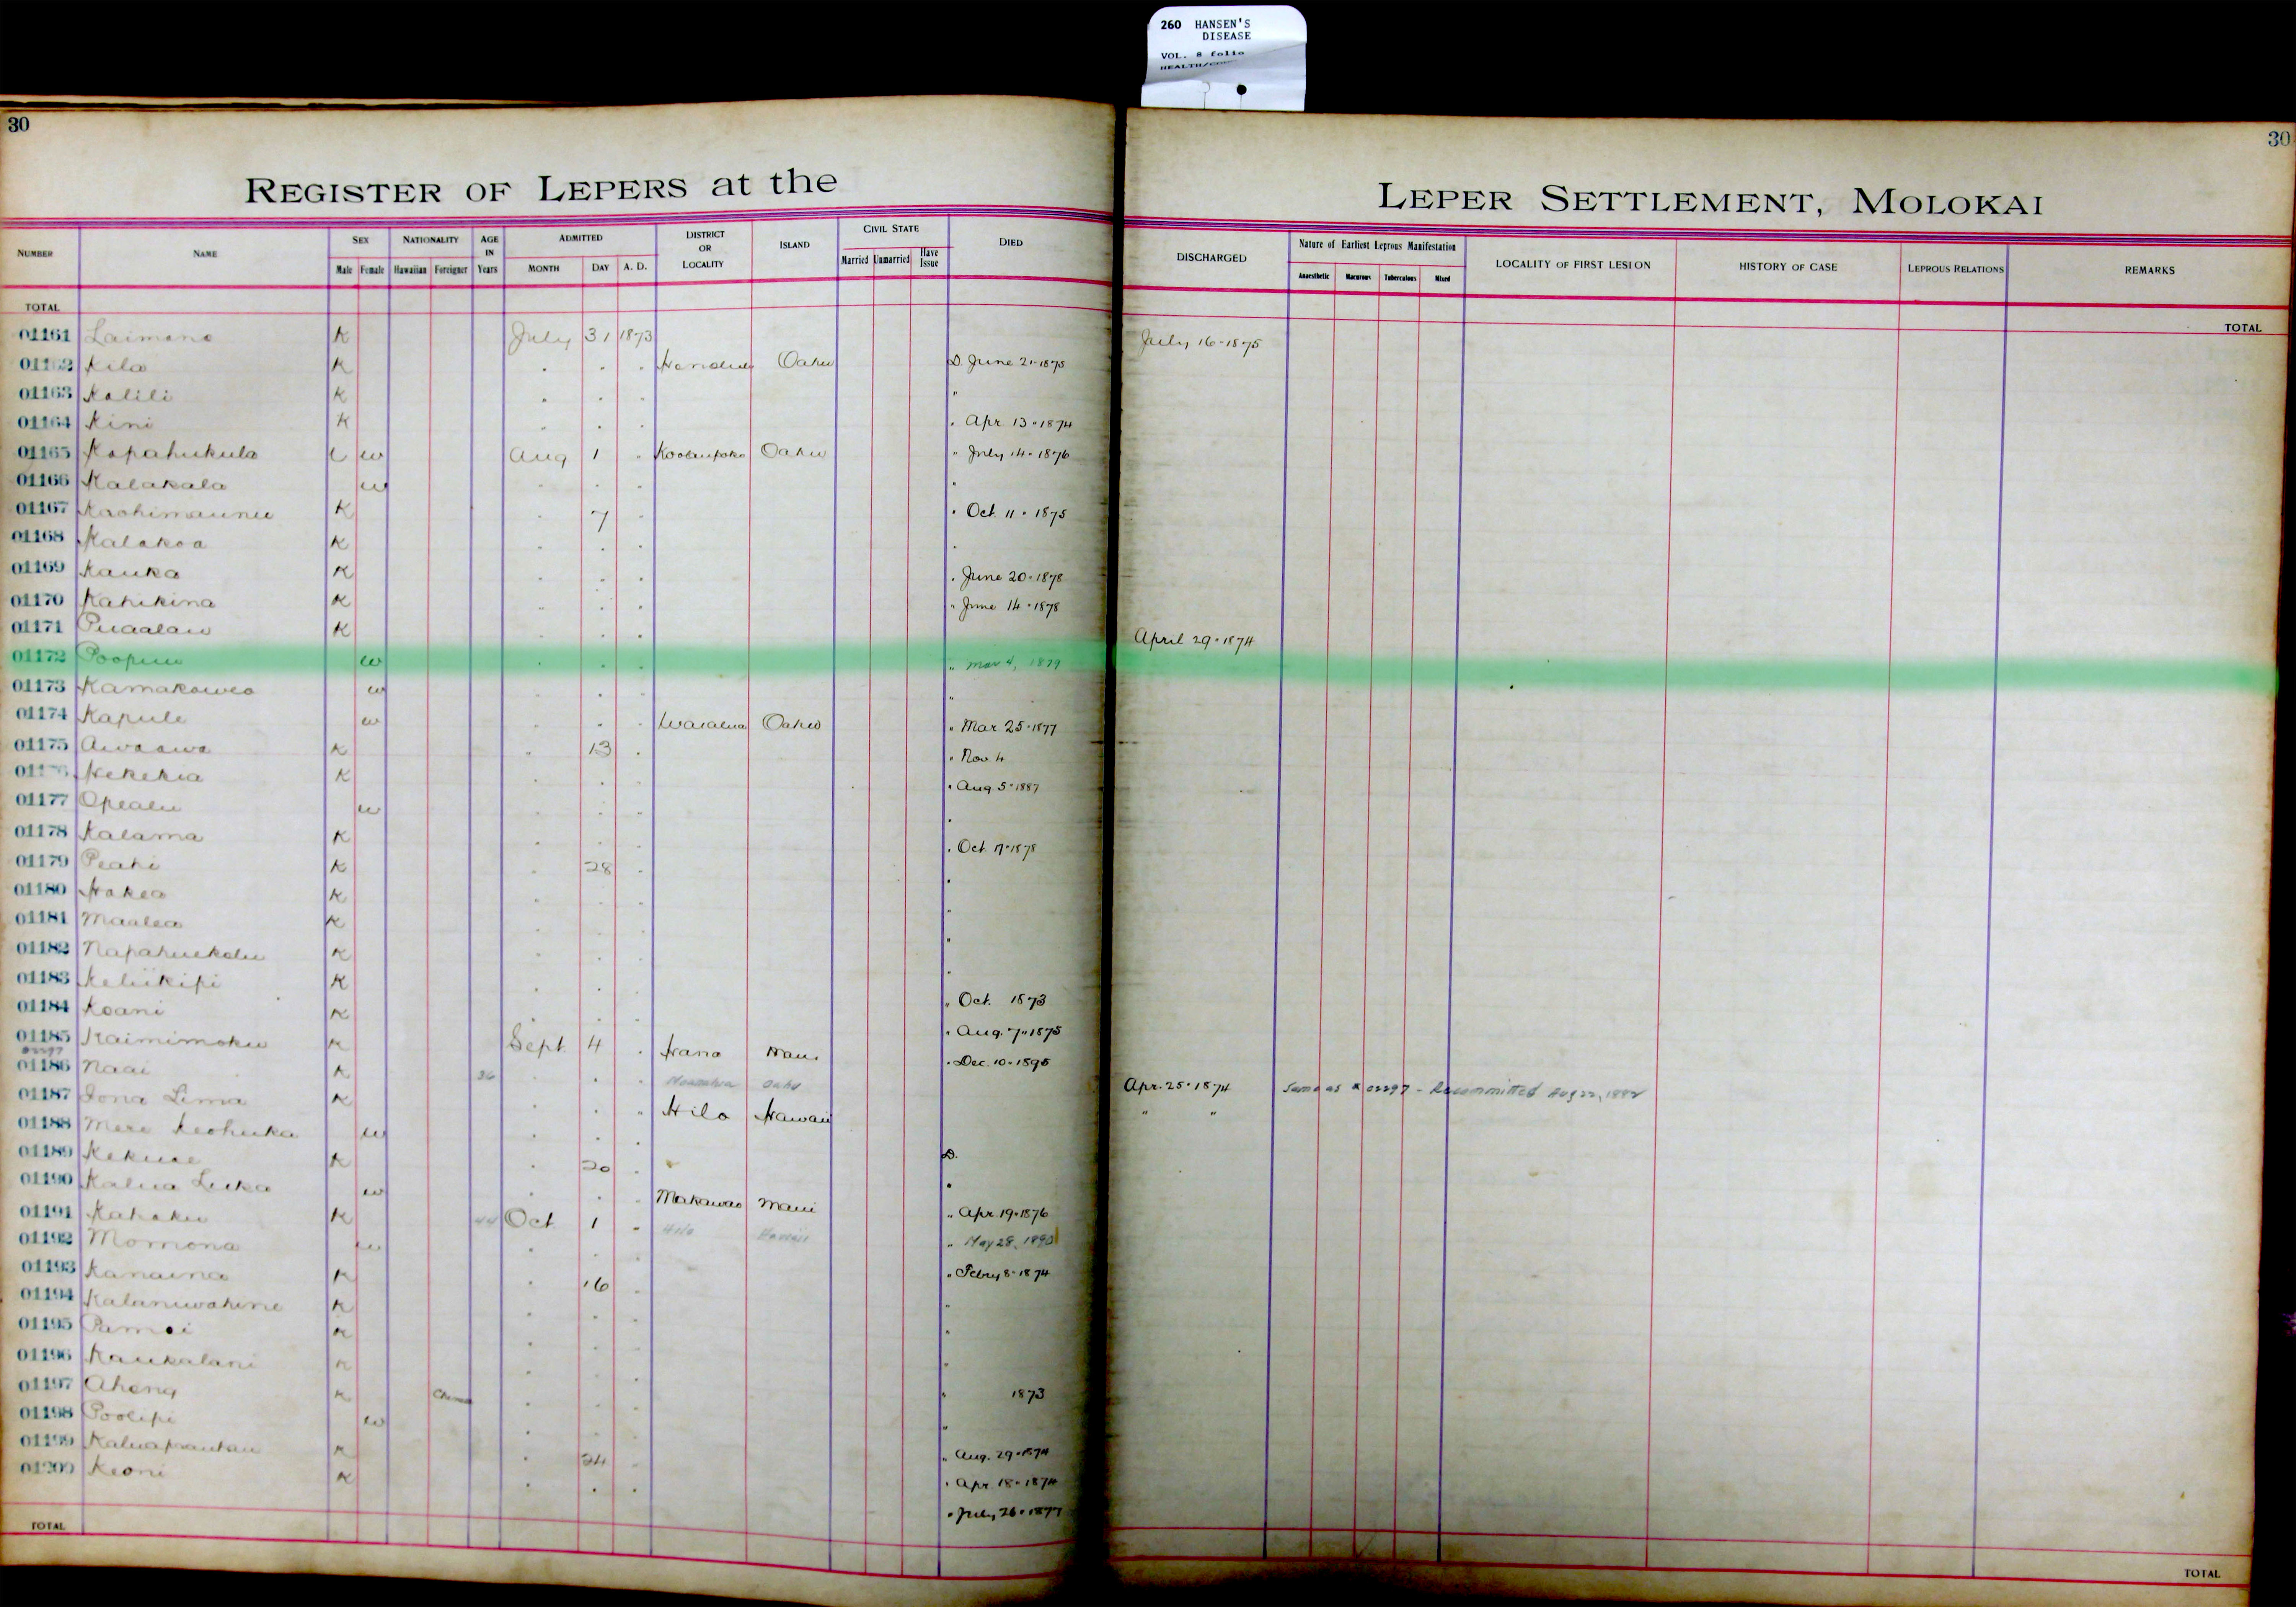 260 HANSEN'S
DISEASE
VOL. 8 folio
30
30
REGISTER OF LEPERS at the
LEPER SETTLEMENT, MOLOKAI
NUMBER NAME SEX Male Female NATIONALITY Hawaiian Foreigner AGE IN Years ADMITTED MONTH DAY A. D. DISTRICT OR LOCALITY ISLAND CIVIL STATE Married Unmarried Have Issue DIED
DISCHARGED Nature of Earliest Leprous Manifestation Anaesthetic Macurous Tuberculous Mixed LOCALITY OF FIRST LESION HISTORY OF CASE LEPROUS RELATIONS REMARKS
TOTAL
TOTAL
01161 Laimana K July 31 1873 July 16-1875
Kila K . . . Honolulu Oahu D. June 21-1875
01163 Kalili K . . . "
01164 Kini K . . . . Apr. 13-1874
01165 Kapahukula w Aug 1 . Koolaupoko Oahu " July 14-1876
01166 Kalakala w . . . "
01167 Kaohimaunu K . 7 . . Oct. 11-1875
01168 Kalakoa K . . . .
01169 Kauka K . . . . June 20-1878
01170 Kahikina K . . . " June 14-1878
01171 Puaalau K . . . April 29-1874
01172 w . . . " Mar 4, 1879
01173 Kamakawea w . . . "
01174 Kapule w . . . Waialua Oahu " Mar. 25-1877
01175 Awaawa K . 13 . " Nov. 4
Kekekia K . . . . Aug 5-1887
01177 Opealu w . . . .
01178 Kalama K . . . . Oct. 17-1878
01179 Peahi K . 28 . .
01180 Hakea K . . . "
01181 Maalea K . . . .
01182 Napahuekolu K . . . "
01183 Keliikipi K . . . " Oct. 1873
01184 Koani K . . . . Aug. 7-1875
01185 Kaimimoku K Sept. 4 . Hana Maui . Dec. 10-1895
01186 Naai K 36 . . . Oahu Apr. 25-1874 Same as # 02297 - Recommitted Aug 22, 1882
01187 Iona Lima K . . " Hilo Hawaii " "
01188 Mere Keohuka w . . .
01189 Kekuae K . 20 . D.
01190 Kalua Luka w . . . Makawao Maui " Apr. 19-1876
01191 Kahaku K 44 Oct 1 . Hilo Hawaii " May 28, 1890
01192 Momona w . . . " Febry 8-1874
01193 Kanaina K . 16 . "
01194 Kalaniwahine K . . . "
01195 K . . . "
01196 Kaukalani K . . . "
01197 Aheng K . . . " 1873
01198 Poolipi w . . . "
01199 K . 24 . " Aug. 29-1874
01200 Keoni K . . . . Apr. 18-1874
. July 26-1877
TOTAL
TOTAL